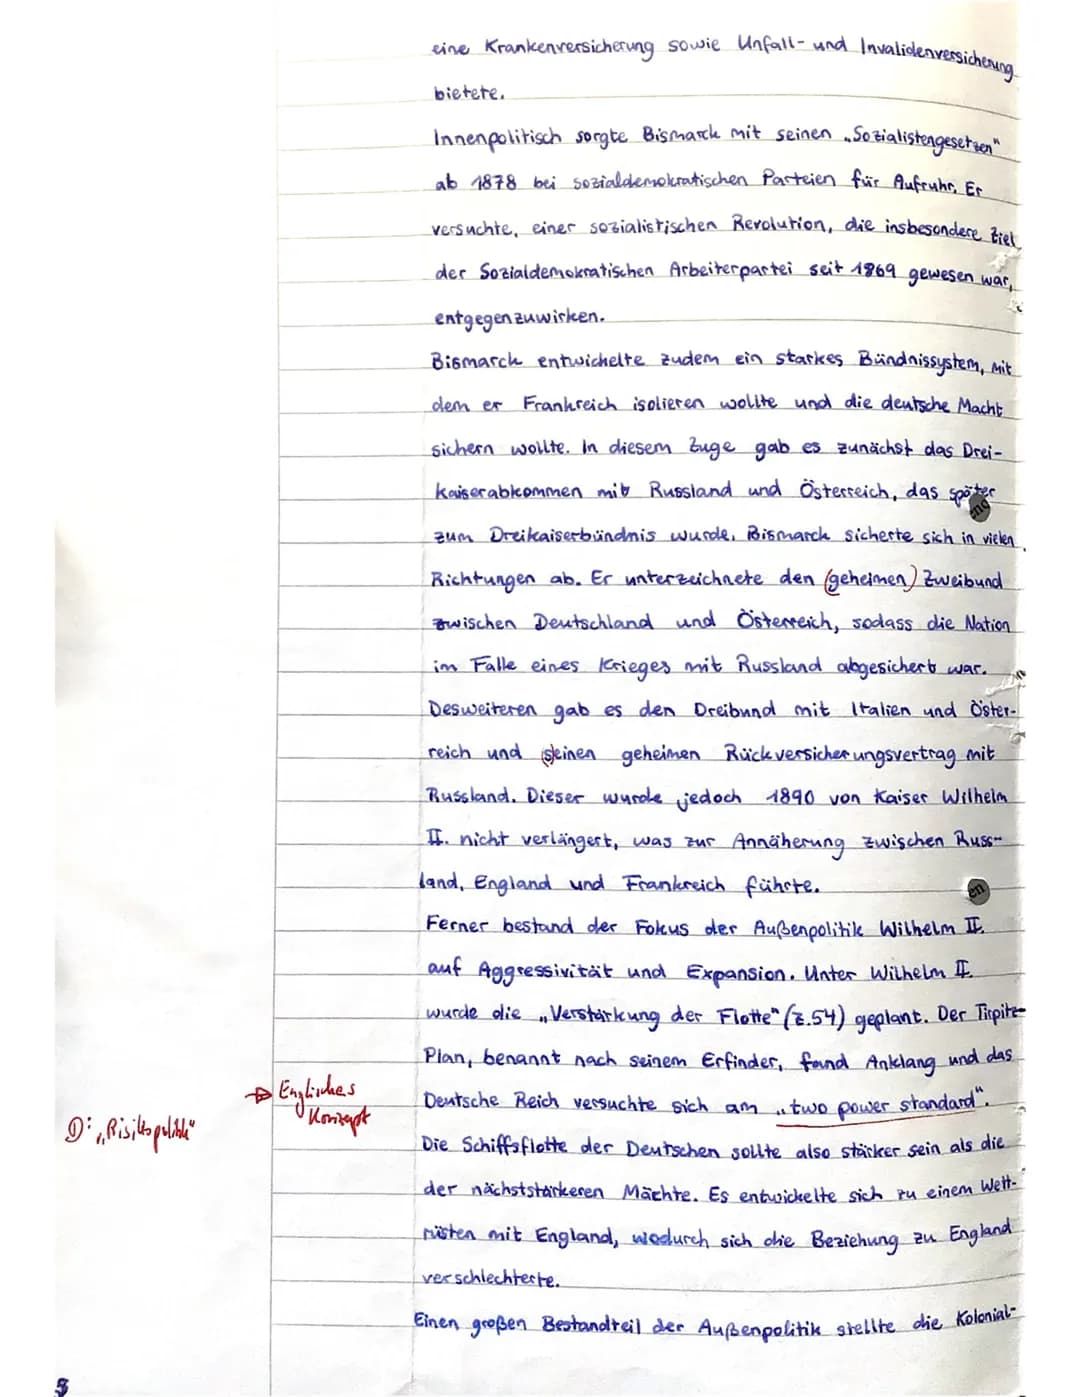 eine Krankenversicherung sowie Unfall- und Invalidenversicherung
bietete.
Innenpolitisch sorgte Bismarck mit seinen „Sozialistengesetzen"
ab 1878 bei sozialdemokratischen Parteien für Aufruhr. Er
versuchte, einer sozialistischen Revolution, die insbesondere Ziel
der Sozialdemokratischen Arbeiterpartei seit 1869 gewesen war,
entgegenzuwirken.
Bismarck entwickelte zudem ein starkes Bündnissystem, mit
dem er Frankreich isolieren wollte und die deutsche Macht
sichern wollte. In diesem Zuge gab es zunächst das Drei-
kaiserabkommen mit Russland und Österreich, das später
zum Dreikaiserbündnis wurde. Bismarck sicherte sich in vielen
Richtungen ab. Er unterzeichnete den (geheimen) Zweibund
zwischen Deutschland und Österreich, sodass die Nation
im Falle eines Krieges mit Russland abgesichert war.
Desweiteren gab es den Dreibund mit Italien und Öster-
reich und seinen geheimen Rückversicherungsvertrag mit
Russland. Dieser wurde jedoch 1890 von Kaiser Wilhelm
II. nicht verlängert, was zur Annäherung zwischen Russ-
land, England und Frankreich führte.
en
Ferner bestand der Fokus der Außenpolitik Wilhelm II.
auf Aggressivität und Expansion. Unter Wilhelm II.
wurde die „Verstärkung der Flotte" (Z.54) geplant. Der Tirpitz-
Plan, benannt nach seinem Erfinder, fand Anklang und das
→ Englisches
Konzept
Deutsche Reich versuchte sich am „two power standard".
D: „Risikopolitik"
Die Schiffsflotte der Deutschen sollte also stärker sein als die
der nächststärkeren Mächte. Es entwickelte sich zu einem Wett-
rüsten mit England, wodurch sich die Beziehung zu England
verschlechterte.
Einen großen Bestandteil der Außenpolitik stellte die Kolonial-